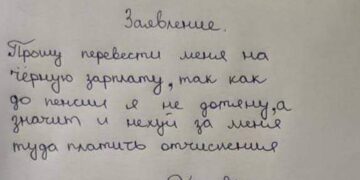 Заявление.
Прошу перевести меня на
чёрную зарплату, так как
до пенсии я не дотяну, а
значит и нехуй за меня
туда платить отчисления